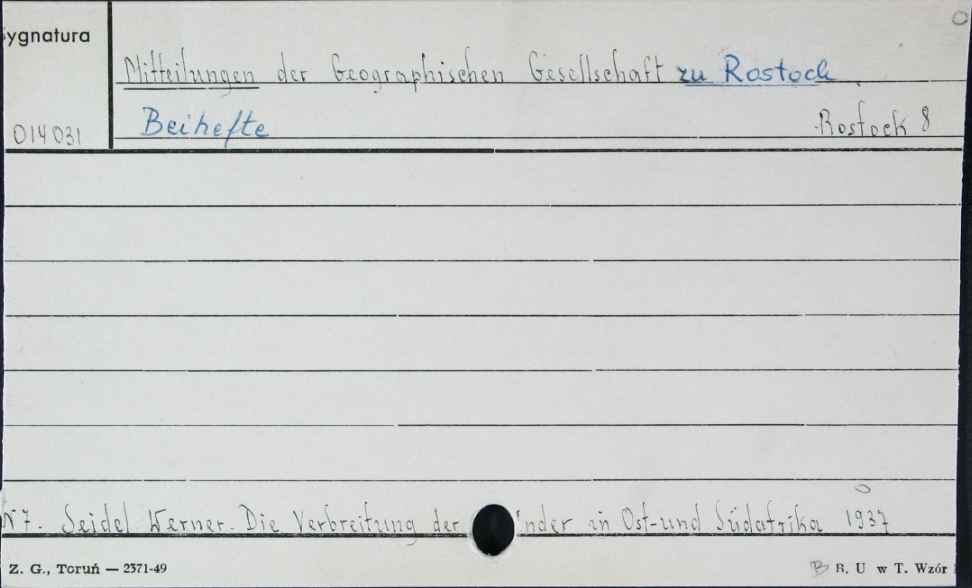 Sygnatura
Mitteilungen der Geographischen Gesellschaft zu Rostock
014031 Beihefte Rostock 8
N 7. Seidel Werner. Die Verbreitung der inder in Ost-und Südafrika 1937
Z. G., Toruń — 2371-49 B. U w T. Wzór